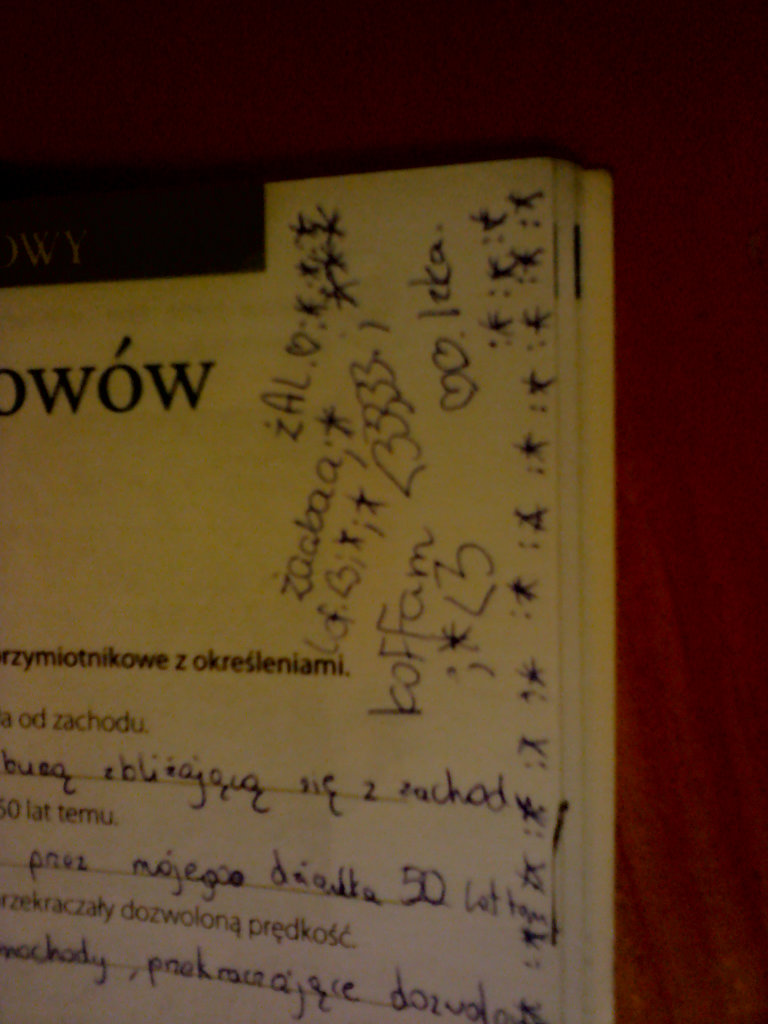 OWY
owów
żAL.♡:*:*:*
żaabaa;*
<3;*;*
<3333.
♡♡. Izka.
koffam
;*<3
:* :* :* :* :* :* :* :* ;* :* :* ;* :* :* :*
rzymiotnikowe z określeniami.
a od zachodu.
burzą zbliżającą się z zachod
50 lat temu.
przez mojego dziadka 50 lat
rzekraczały dozwoloną prędkość.
mochody, przekraczające dozwolo